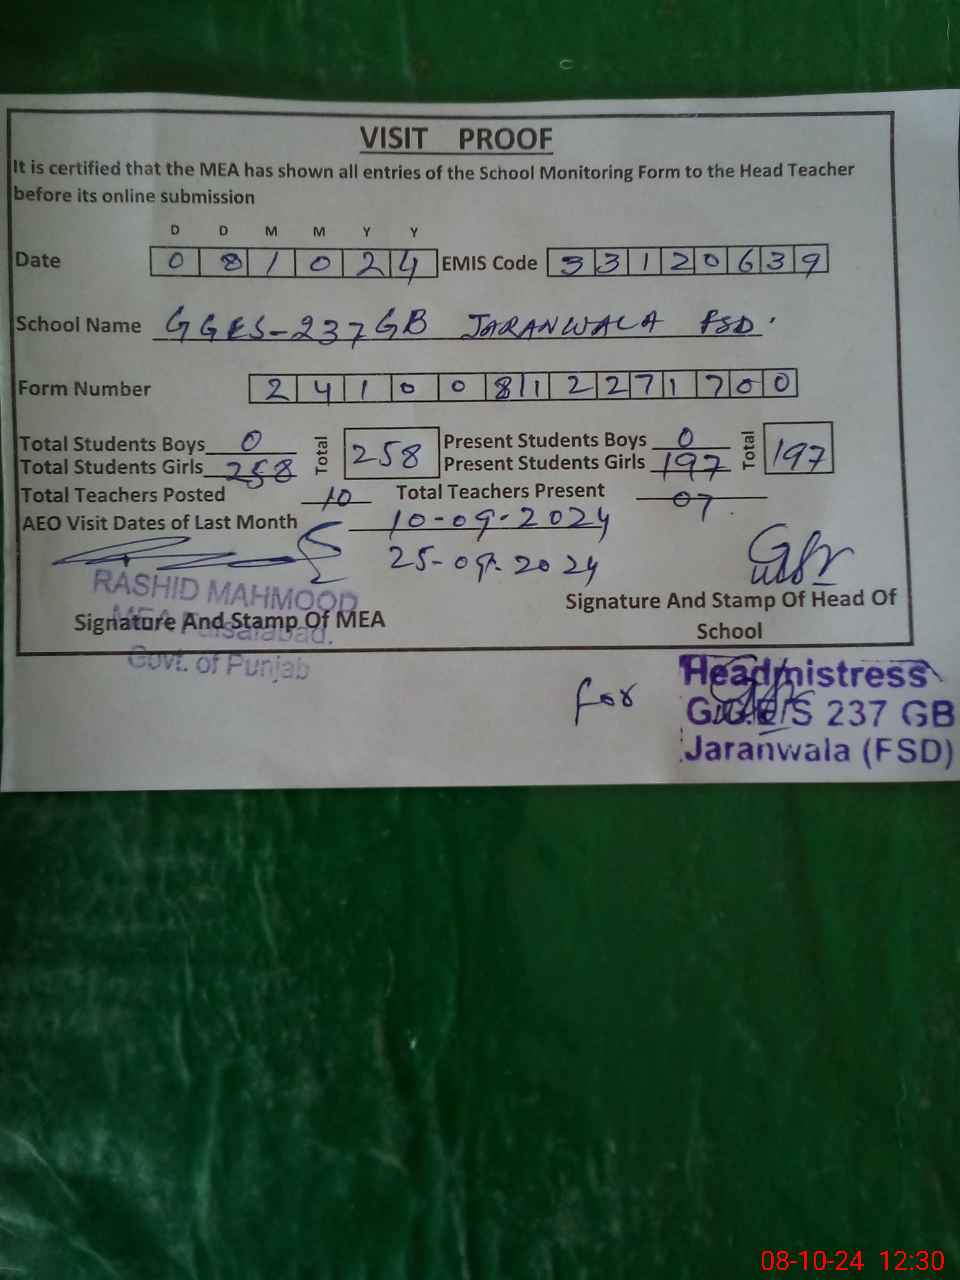 VISIT PROOF
It is certified that the MEA has shown all entries of the School Monitoring Form to the Head Teacher
before its online submission
D D M M Y Y
Date 0 8 1 0 2 4 EMIS Code 3 3 1 2 0 6 3 9
School Name GGES-237GB JARANWALA FSD.
Form Number 2 4 1 0 0 8 1 2 2 7 1 7 0 0
Total Students Boys 0 Total 258 Present Students Boys 0 Total 197
Total Students Girls 258 Present Students Girls 197
Total Teachers Posted 10 Total Teachers Present 07
AEO Visit Dates of Last Month 10-09-2024
25-09-2024
RASHID MAHMOOD
MEA Faisalabad.
Govt. of Punjab
Signature And Stamp Of MEA
Signature And Stamp Of Head Of
School
for
Headmistress
G.G.E/S 237 GB
Jaranwala (FSD)
08-10-24 12:30